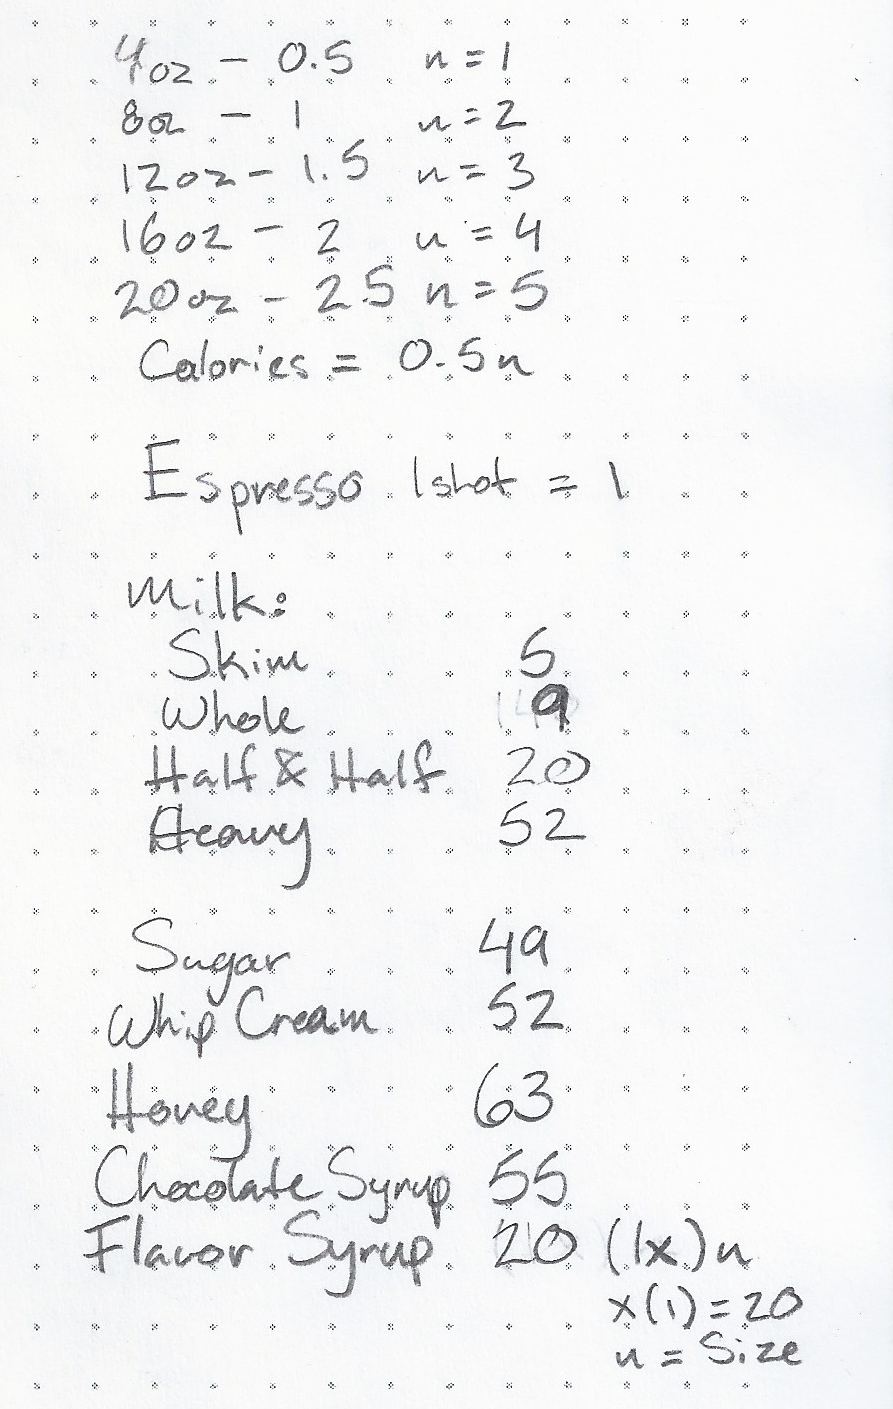 4oz - 0.5 n=1
8oz - 1 n=2
12oz - 1.5 n=3
16oz - 2 n=4
20oz - 2.5 n=5
Calories = 0.5n
Espresso 1shot = 1
Milk:
Skim 5
Whole 9
Half & Half 20
Heavy 52
Sugar 49
Whip Cream 52
Honey 63
Chocolate Syrup 55
Flavor Syrup 20 (1x)n
x(1)=20
n = Size